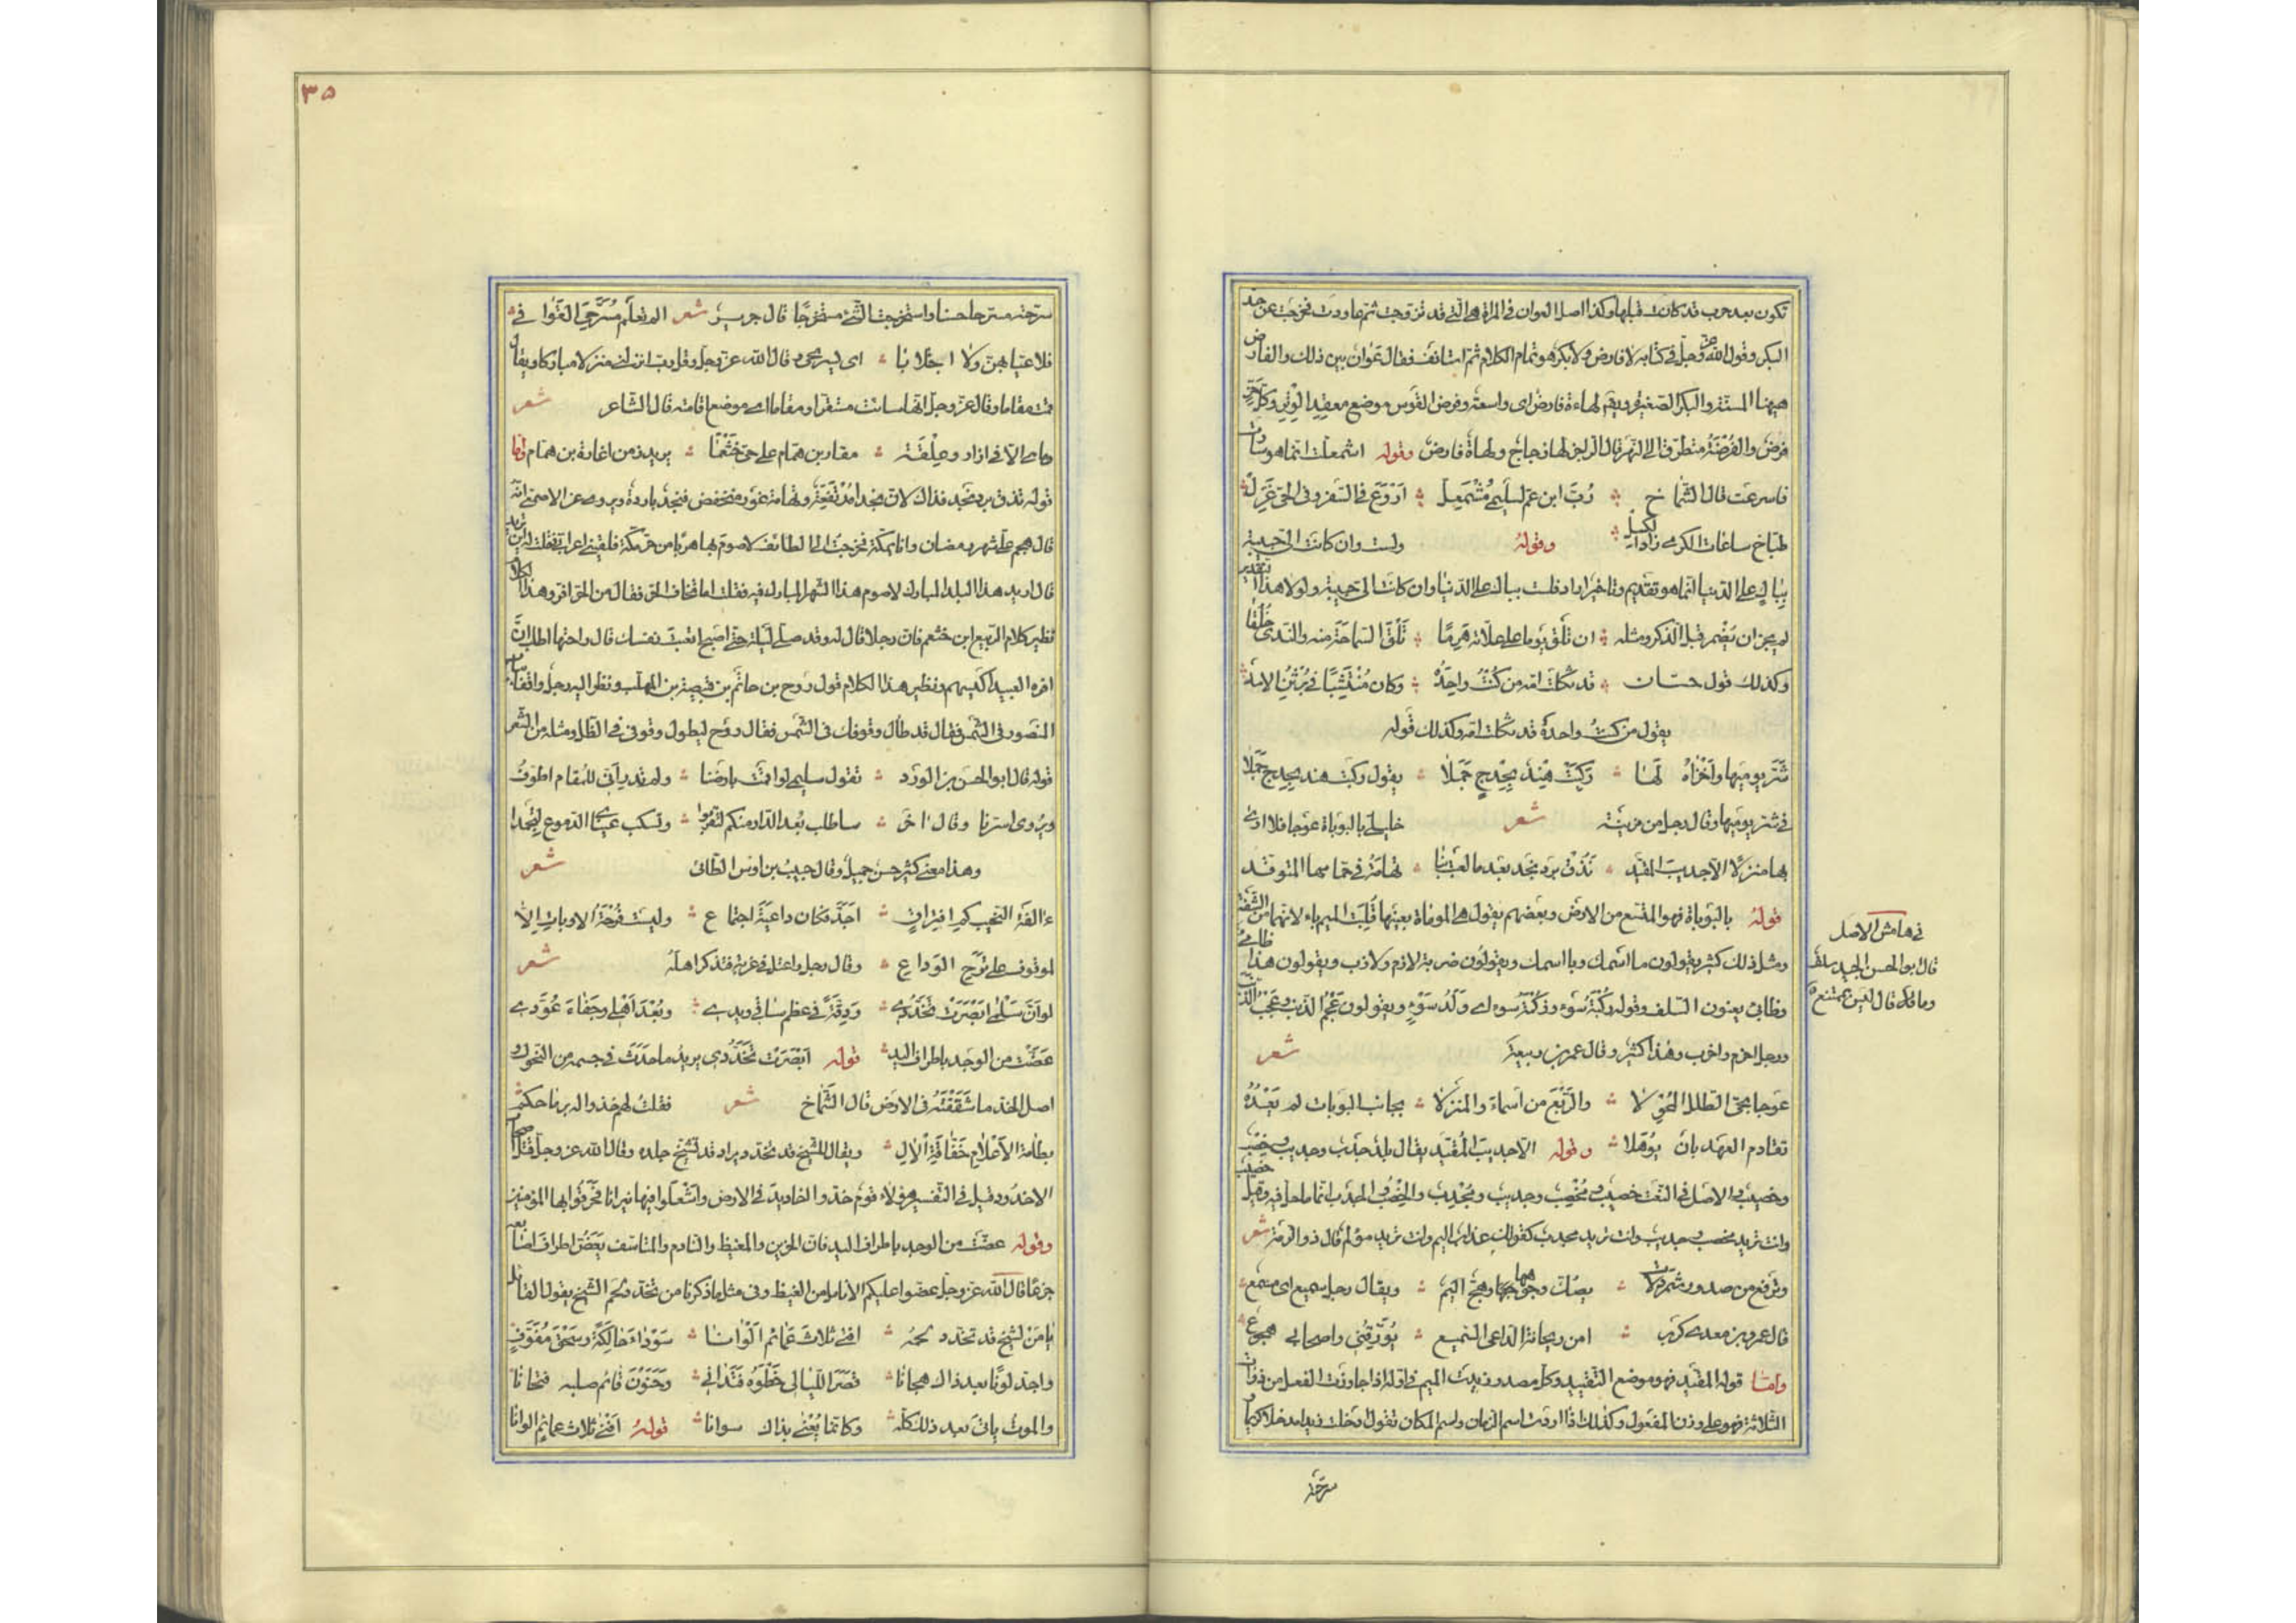 تكون بعد حرب قد كانت قبلها وكذا اصل العوان في المراة هي التي قد تزوجت ثم عاودت فخرجت عن حد
البكر وقول الله عز وجل في كتابه لا فارض ولا بكر هو تمام الكلام ثم استانف فقال عوان بين ذلك والفارض
هيهنا المسنة والبكر الصغيرة ويقم لهاءة فارض اى واسعة وفرض القوس موضع معقد الوتر وكل حز
فرض والفرضة متطرق الى النهر قال الراجز لها زجاج ولهاة فارض وقوله اشمعلت انما هو ثارت
فاسرعت قال الشماخ رب ابن عم لسليمى مشمعل اروع في السفر وفي الحي غزل
طباخ ساعات الكرى زاد الكسل وقوله ولست وان كانت الى حبيبة
بباك على الدنيا انما هو تقديم وتاخير اراد فلست بباك على الدنيا وان كانت الى حبيبة ولولا هذا التقدير
لم يجز ان يضمر قبل الذكر ومثله ان تلق يوما على علاته هرما تلق السماحة منه والندى خلقا
وكذلك قول حسان قد ثكلت امه من كنت واحده وكان منتشبا في برثن الاسد
يقول من كنت واحده قد ثكلت امه وكذلك قوله
شر يوميها واخزاه لها ركبت هند بحدج جملا يقول ركبت هند بحدج جملا
في شر يوميها وقال رجل من مزينة شعر خليلى بالبوباة عوجا فلا ارى
بها منزلا الا جديب المقيد نذق برد نجد بعد ما لعبت بنا تهامة في حمامها المتوقد
قوله بالبوباة فهو المتسع من الارض وبعضهم يقول هي الموماة بعينها قلبت الميم باء لانهما من الشفة
ومثل ذلك كثير يقولون ما اسمك وبا اسمك ويقولون ضربة لازم ولازب ويقولون هذا ظامى
وظابى يعنون السلف وقوله ركبة سوء وزكمة سوء اى ولد سوء ويقولون عجم الذنب وعجب الذنب
ورجل اخرم واخرب وهذا كثير وقال عمر بن ربيعة شعر
عوجا نحي الطلل المحولا والربع من اسماء والمنزلا بجانب البوبات لم يعده
تقادم العهد بان يؤهلا وقوله الا جديب المقيد يقال بلد جدب وجديب وخصب
وخصيب والاصل في النعت خصيب ومخصب وجديب ومجدب والخصب والجدب انما ما حل فيه وقيل خصيب
وانت تريد مخصب وجديب وانت تريد مجدب كقولك عذاب اليم وانت تريد مؤلم قال ذو الرمة شعر
وترفع من صدور شمردلات يصك وجوهها وهج اليم ويقال رجل سميع اى مسمع
قال عمرو بن معدى كرب امن ريحانة الداعى السميع يؤرقنى واصحابى هجوع
واما قوله المقيد فهو موضع التقييد وكل مصدر زيدت الميم في اوله اذا جاوزت الفعل من ذوات
الثلاثة فهو على وزن المفعول وكذلك اذا اردت اسم الزمان واسم المكان تقول ادخلت زيدا مدخلا كريما
سرحته
في هامش الاصل
قال ابو الحسن الجيد سلف
٣٥
سرحته مسرحا حسنا واستخرجت الشئ مستخرجا قال جرير شعر الم تعلم مسرحى القوافى
فلا عيا بهن ولا اجتلابا اى تسريحى وقال الله عز وجل وقل رب انزلنى منزلا مباركا ويقال
قمت مقاما وقال عز وجل انها ساءت مستقرا ومقاما اى موضع اقامة قال الشاعر شعر
وما هى الا في ازار وعلقة مغار بن همام على حى خثعما يريد زمن اغارة بن همام واما
قوله نذق برد نجد فذاك لان نجدا مرتفعة وتهامة غور منخفض فنجد باردة ويروى عن الاصمعى انه
قال هجم على شهر رمضان وانا بمكة فخرجت الى الطائف لاصوم بها هربا من حر مكة فلقينى اعرابى فقلت له اين تريد
قال اريد هذا البلد المبارك لاصوم هذا الشهر المبارك فيه فقلت اما تخاف الحر فقال من الحر افر وهذا الكلام
نظير كلام الربيع ابن خثعم فان رجلا قال له وقد صلى ليلة حتى اصبح اتعبت نفسك قال راحتها اطلب ان
افره العبيد اكيسهم ونظير هذا الكلام قول روح بن حاتم بن قبيصة بن المهلب ونظر اليه رجل واقفا بباب
المنصور في الشمس فقال قد طال وقوفك في الشمس فقال روح ليطول وقوفى في الظل ومثله من الشعر
قوله قال ابو الحسن بن الورد تقول سليمى لو اقمت بارضنا ولم تدر انى للمقام اطوف
ويروى لسرنا وقال اخر ساطلب بعد الدار منكم لتقربوا وتسكب عيناى الدموع لتجمدا
وهذا معنى كثير حسن جميل وقال حبيب بن اوس الطائى شعر
ءالفة النحيب كم افتراق اجد فكان داعية اجتماع وليست فرحة الاوبات الا
لموقوف على ترح الوداع وقال رجل واعتل في غربة فتذكر اهله شعر
لو ان سلمى ابصرت تخددى ودقة في عظم ساقى ويدى وبعد اهلى وجفاء عودى
عضت من الوجد باطراف اليد قوله ابصرت تخددى يريد ما حدث في جسمه من النحول و
اصل الخد ما شققته في الارض قال الشماخ شعر فقلت لهم خذوا له برماحكم
بطامسة الاعلام خفاقة الال ويقال للشيخ قد تخدد يراد قد تشنج جلده وقال الله عز وجل قتل اصحاب
الاخدود وقيل في التفسير هؤلاء قوم خدوا اخاديد في الارض واشعلوا فيها نيرانا فحرقوا بها المؤمنين
وقوله عضت من الوجد باطراف اليد فان الحزين والمغيظ والنادم والمتاسف يعض اطراف اصابعه
جزعا قال الله عز وجل عضوا عليكم الانامل من الغيظ وفى مثل ما ذكرنا من تخدد لحم الشيخ يقول القائل
يا من لشيخ قد تخدد لحمه افنى ثلاث عمائم الوانا سوداء حالكة وسحق مفوف
واجد لونا بعد ذاك هجانا قصر الليالى خطوه فتدانى وحنون قائم صلبه فتحانا
والموت ياتى بعد ذلك كله وكانما يعنى بذاك سوانا قوله افنى ثلاث عمائم الوانا